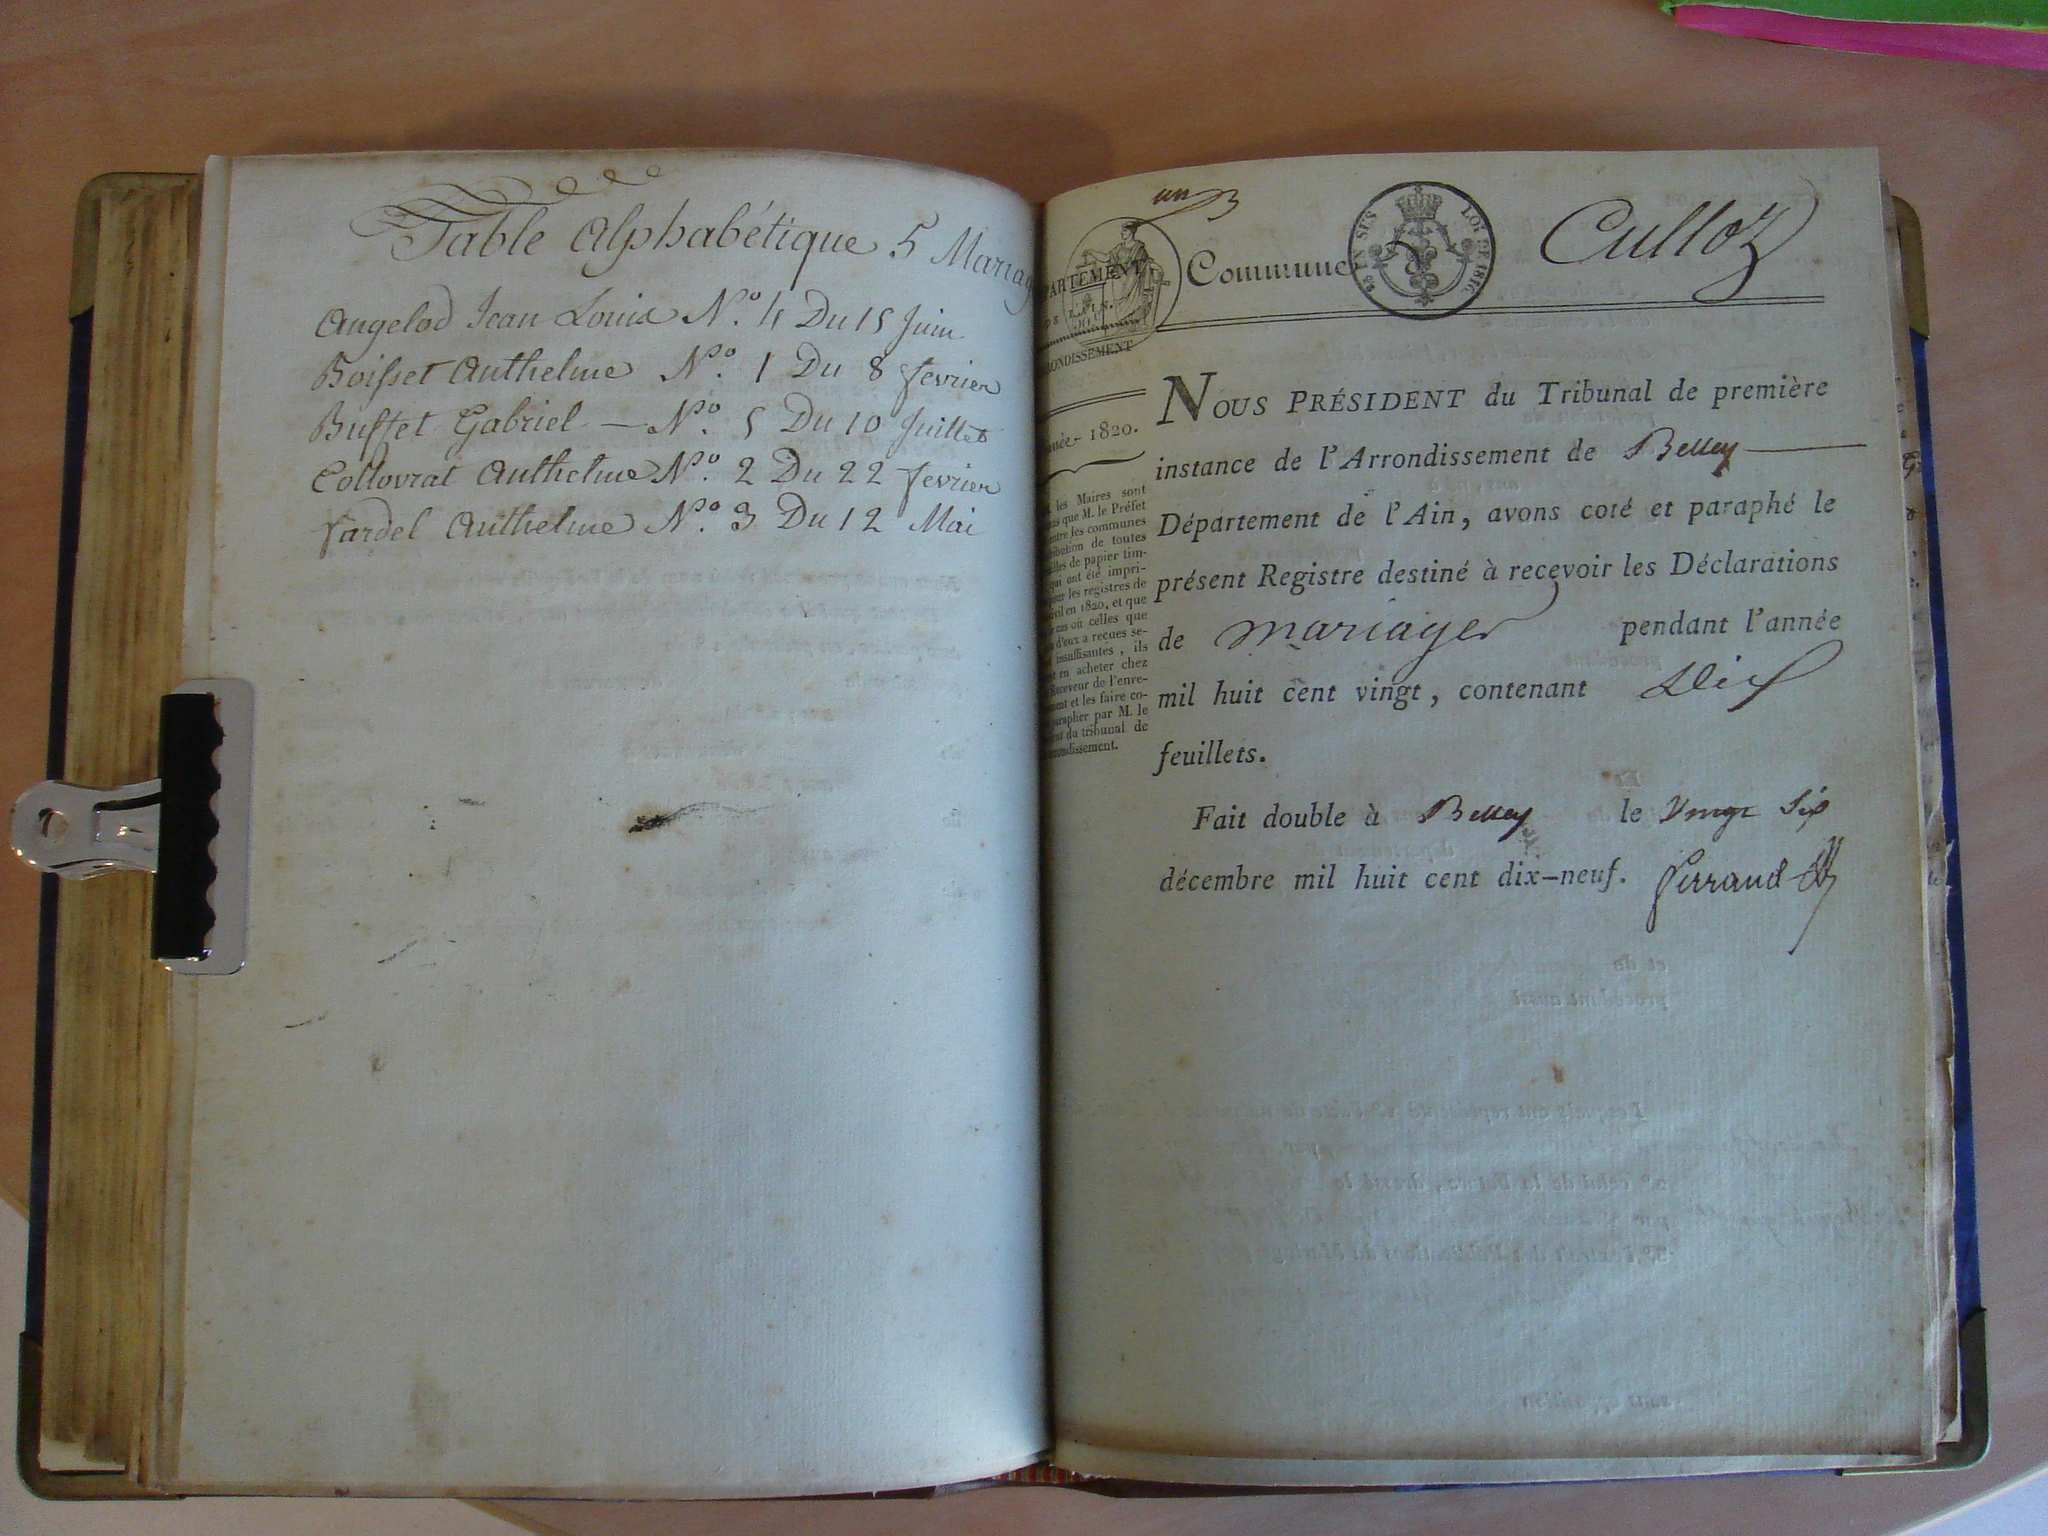 Table Alphabétique 5 Mariag
Angelod Jean Louis N.º 4 Du 15 Juin
Boisset Anthelme N.º 1 Du 8 fevrier
Buffet Gabriel — N.º 5 Du 10 Juillet
Collovrat Anthelme N.º 2 Du 22 fevrier
fardel Anthelme N.º 3 Du 12 Mai
un
PARTEMENT
DE L'AIN.
RONDISSEMENT
Commune
LOI DE
Culloz
1820.
les Maires sont
que M. le Préfet
entre les communes
tribution de toutes
de papier tim-
qui ont été impri-
les registres de
civil en 1820, et que
cas où celles que
d'eux a recues se-
insuffisantes, ils
en acheter chez
Receveur de l'enre-
et les faire co-
parapher par M. le
du tribunal de
NOUS PRÉSIDENT du Tribunal de première
instance de l'Arrondissement de Belley
Département de l'Ain, avons coté et paraphé le
présent Registre destiné à recevoir les Déclarations
de mariages pendant l'année
mil huit cent vingt, contenant Dix
feuillets.
Fait double à Belley le Vingt Six
décembre mil huit cent dix-neuf. Perraud